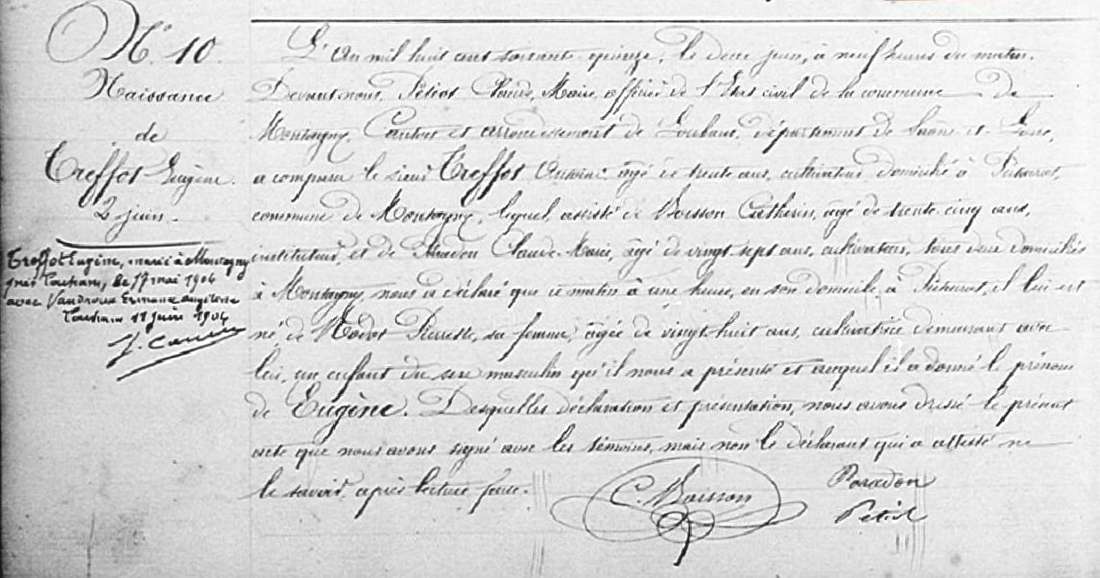 N.º 10.
Naissance
de
Treffot Eugène.
2 juin.
Treffot Eugène, marié à Montagny
près Louhans, le 17 mai 1904
avec Vandroux Ermance
Louhans 11 juin 1904
L'An mil huit cent soixante quinze, le deux juin, à neuf heures du matin.
Devant nous, Petiot Claude, Maire, officier de l'Etat civil de la commune de
Montagny, Canton et arrondissement de Louhans, département de Saône et Loire,
a comparu le sieur Treffot Antoine âgé de trente ans, cultivateur domicilié à
commune de Montagny, lequel, assisté de Boisson Catherin, âgé de trente cinq ans,
instituteur, et de Claude Marie, âgé de vingt sept ans, cultivateur, tous deux domiciliés
à Montagny, nous a déclaré que ce matin à une heure, en son domicile, à il lui est
né, de Modot Pierrette, sa femme, âgée de vingt huit ans, cultivatrice demeurant avec
lui, un enfant du sexe masculin qu'il nous a présenté et auquel il a donné le prénom
de Eugène. Desquelles déclaration et présentation, nous avons dressé le présent
acte que nous avons signé avec les témoins, mais non le déclarant qui a attesté ne
le savoir, après lecture faite.
C. Boisson
Paradon
Petiot